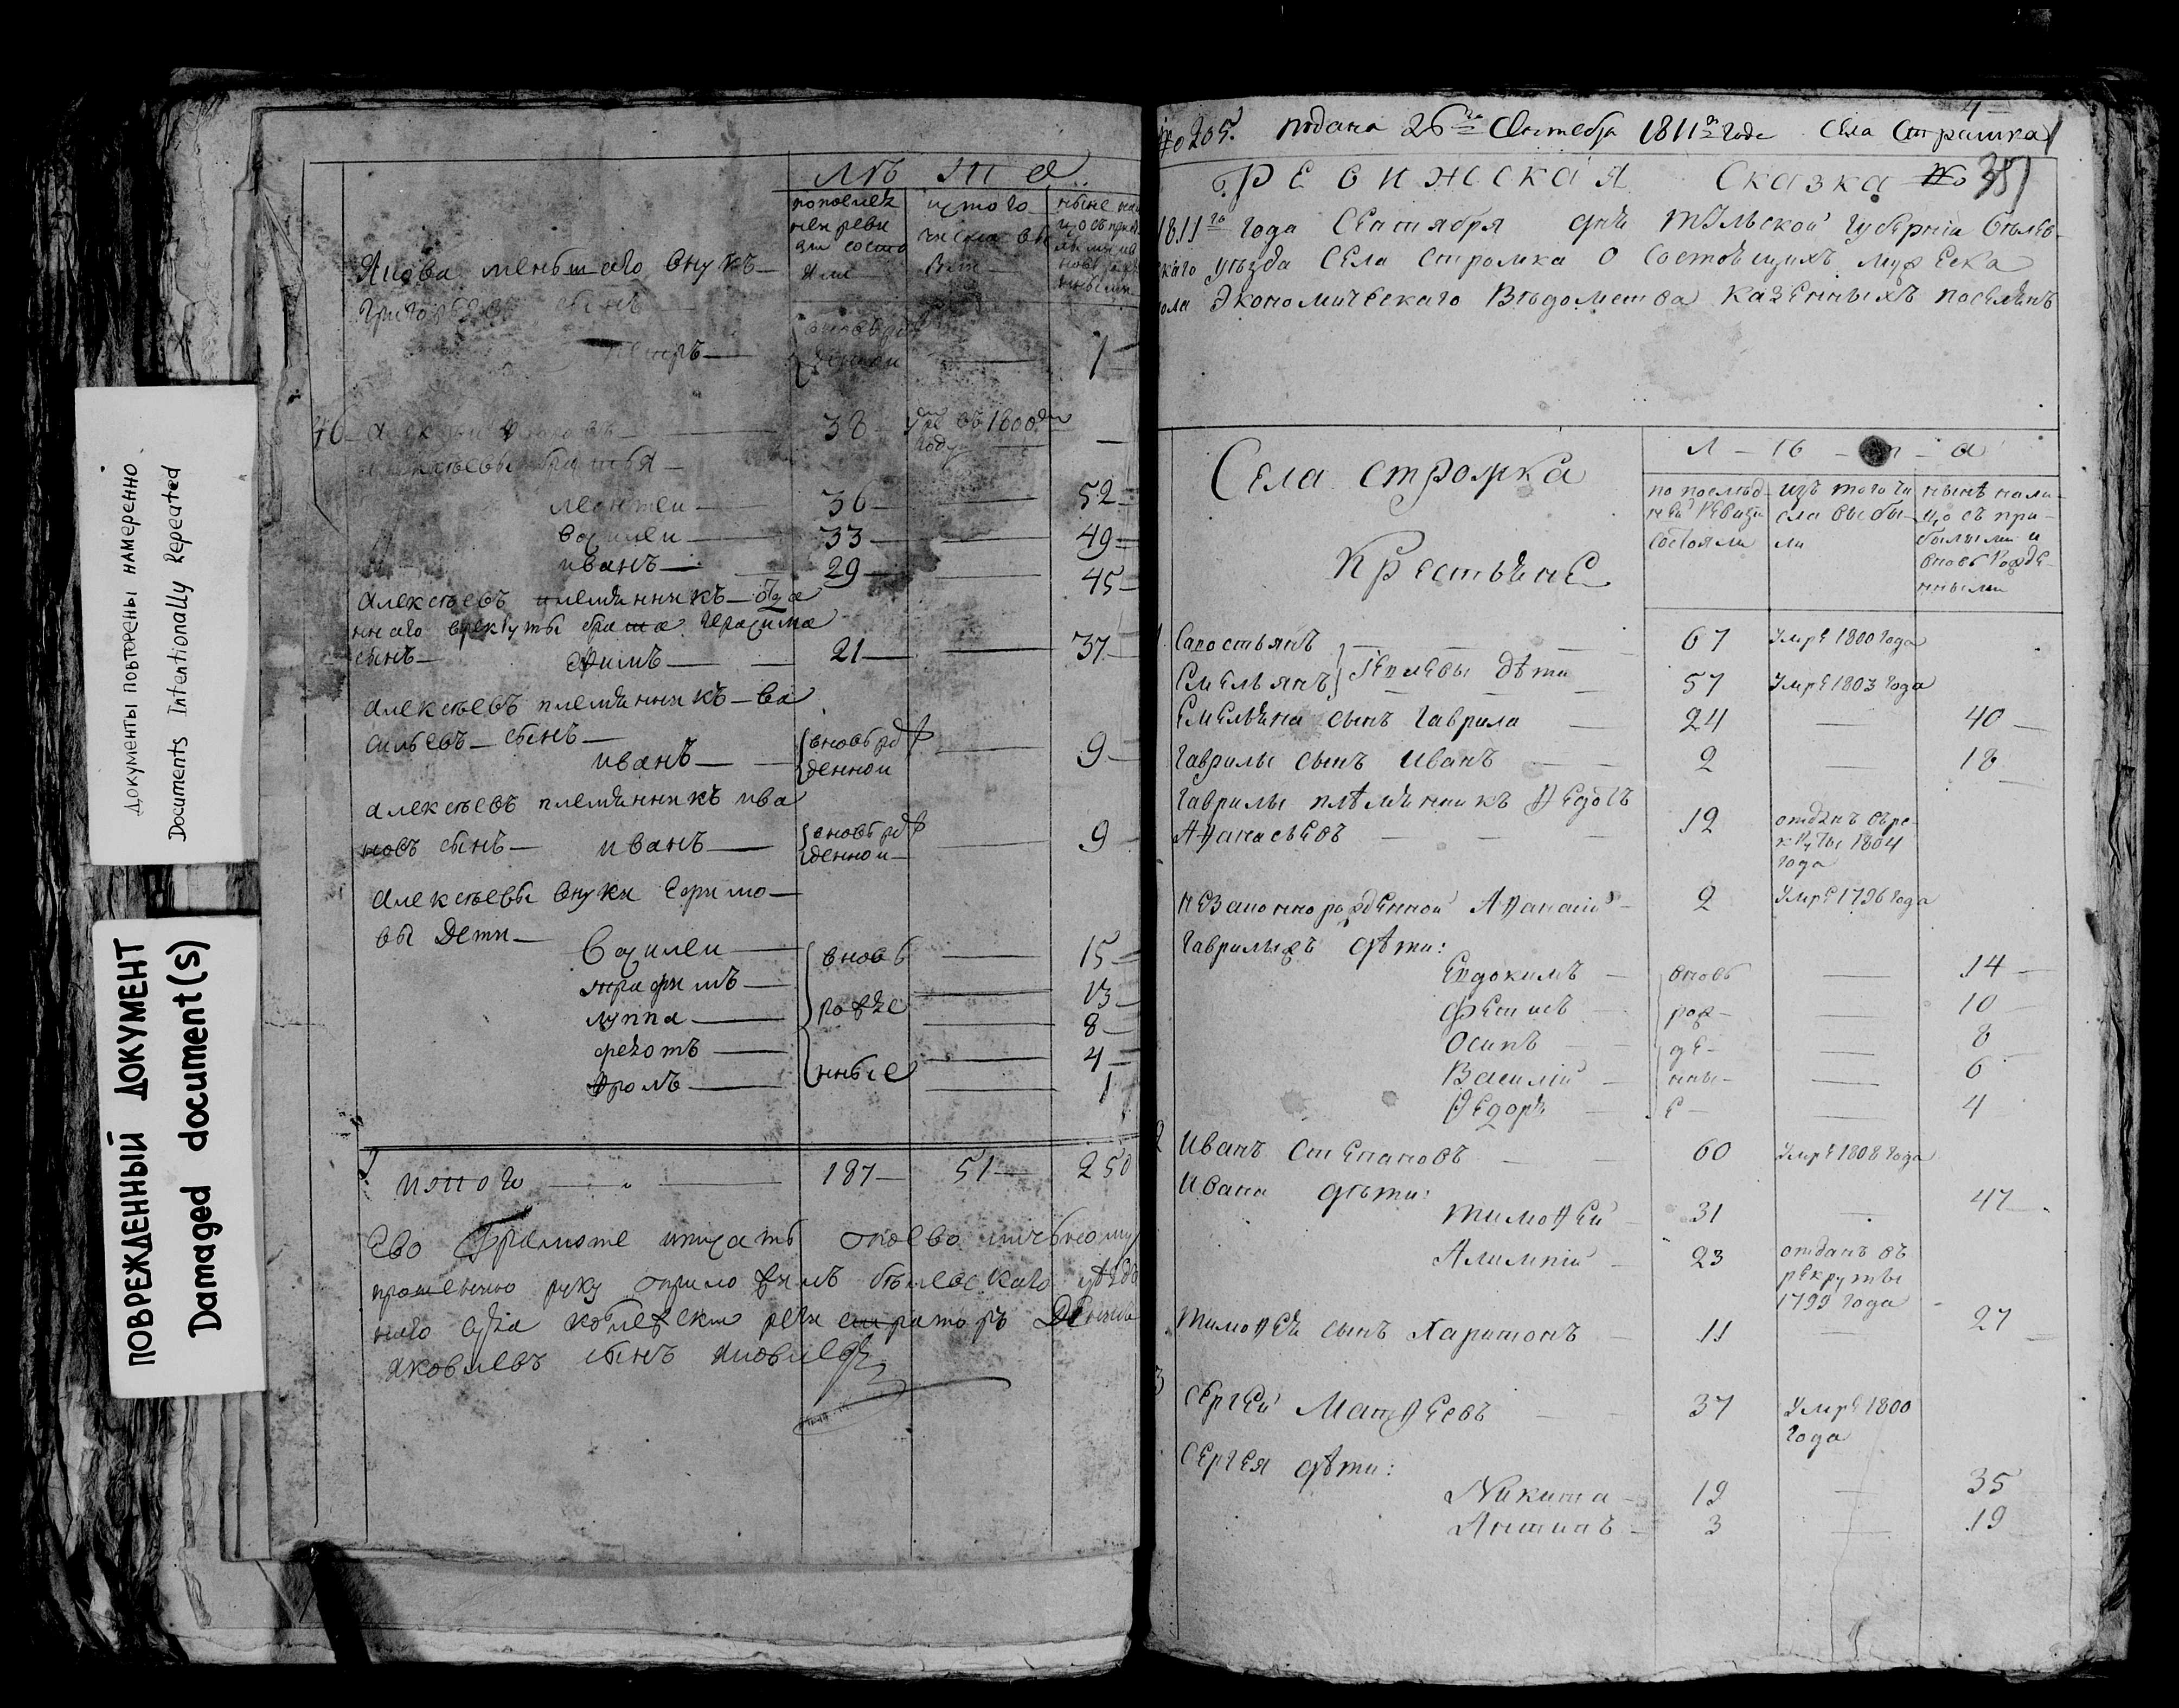 ДОКУМЕНТЫ ПОВТОРЕНЫ НАМЕРЕННО
Documents Intentionally Repeated
ПОВРЕЖДЕННЫЙ ДОКУМЕНТ
Damaged document(s)
лѣта
Якова меньшаго внукъ
Григорьевъ сынъ
Петръ 1
46
38 1800
Алексѣевы братья
леонтеи 36 52
василеи 33 49
иванъ 29 45
Алексѣевъ племянникъ отда
ннаго врекруты брата Герасима
сынъ ефимъ 21 37
Алексѣевъ племянникъ ва
сильевъ сынъ
иванъ вновь рож
денной 9
алексѣевъ племянникъ ива
новъ сынъ иванъ вновь рож
денной 9
алексѣевы внуки Ефимо
вы дети
Василеи вновь 15
трафимъ 13
луппа рожде 8
федотъ 4
Фролъ нные 1
итого 187 51 250
руку приложилъ бѣлевскаго
яковлевъ сынъ
№ 205. подана 26го Октебря 1811го годе Села Стромка
РЕВИЖСКАЯ Сказка № 351
1811го года Сентября дня Тульской губерніи Бѣлев-
скаго уѣзда Села Стромка о Состоящихъ мужеска
пола Экономическаго Вѣдомства казенныхъ поселянъ
Села Стромка
Крестьяне
Л - ѣ - т - а
по послѣд-
ней Ревизіи
состояли
изъ того чи
сла выбы-
ли
нынѣ нали-
цо съ при-
былыми и
вновь Рожде-
нными
1 Савостьянъ 67 Умре 1800 года
Емельянъ дѣти 57 Умре 1803 года
Емельяна сынъ Гаврила 24 40
Гаврилы сынъ Иванъ 2 18
Гаврилы племянникъ Ѳедотъ
Аѳанасьевъ 12 отданъ врре-
круты 1804
года
незаконнорожденной Аѳанасій 2 Умре 1796 года
Гавриловъ дѣти:
Евдокимъ вновь 14
Фетисъ рож- 10
Осипъ де- 8
Василій нны- 6
Ѳедоръ е 4
2 Иванъ Степановъ 60 Умре 1808 года
Ивана дѣти:
Тимоѳей 31 47
Алимпій 23 отданъ въ
рекруты
1799 года
Тимоѳея сынъ Харитонъ 11 27
3 Сергей Матѳеевъ 37 Умре 1800
года
Сергея дѣти:
Никита 19 35
Антипъ 3 19